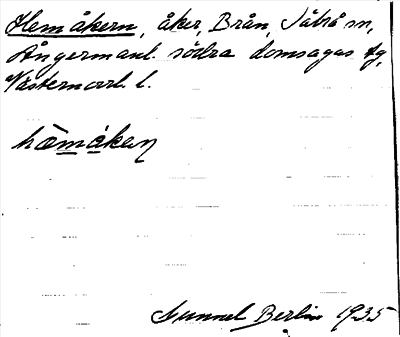 Hemåkern, åker, Brån, Säbrå sn,
Ångermanl. södra domsagas tg,
Västernorrl. l.
hämåkeṇ
Gunnel Berlin 1935